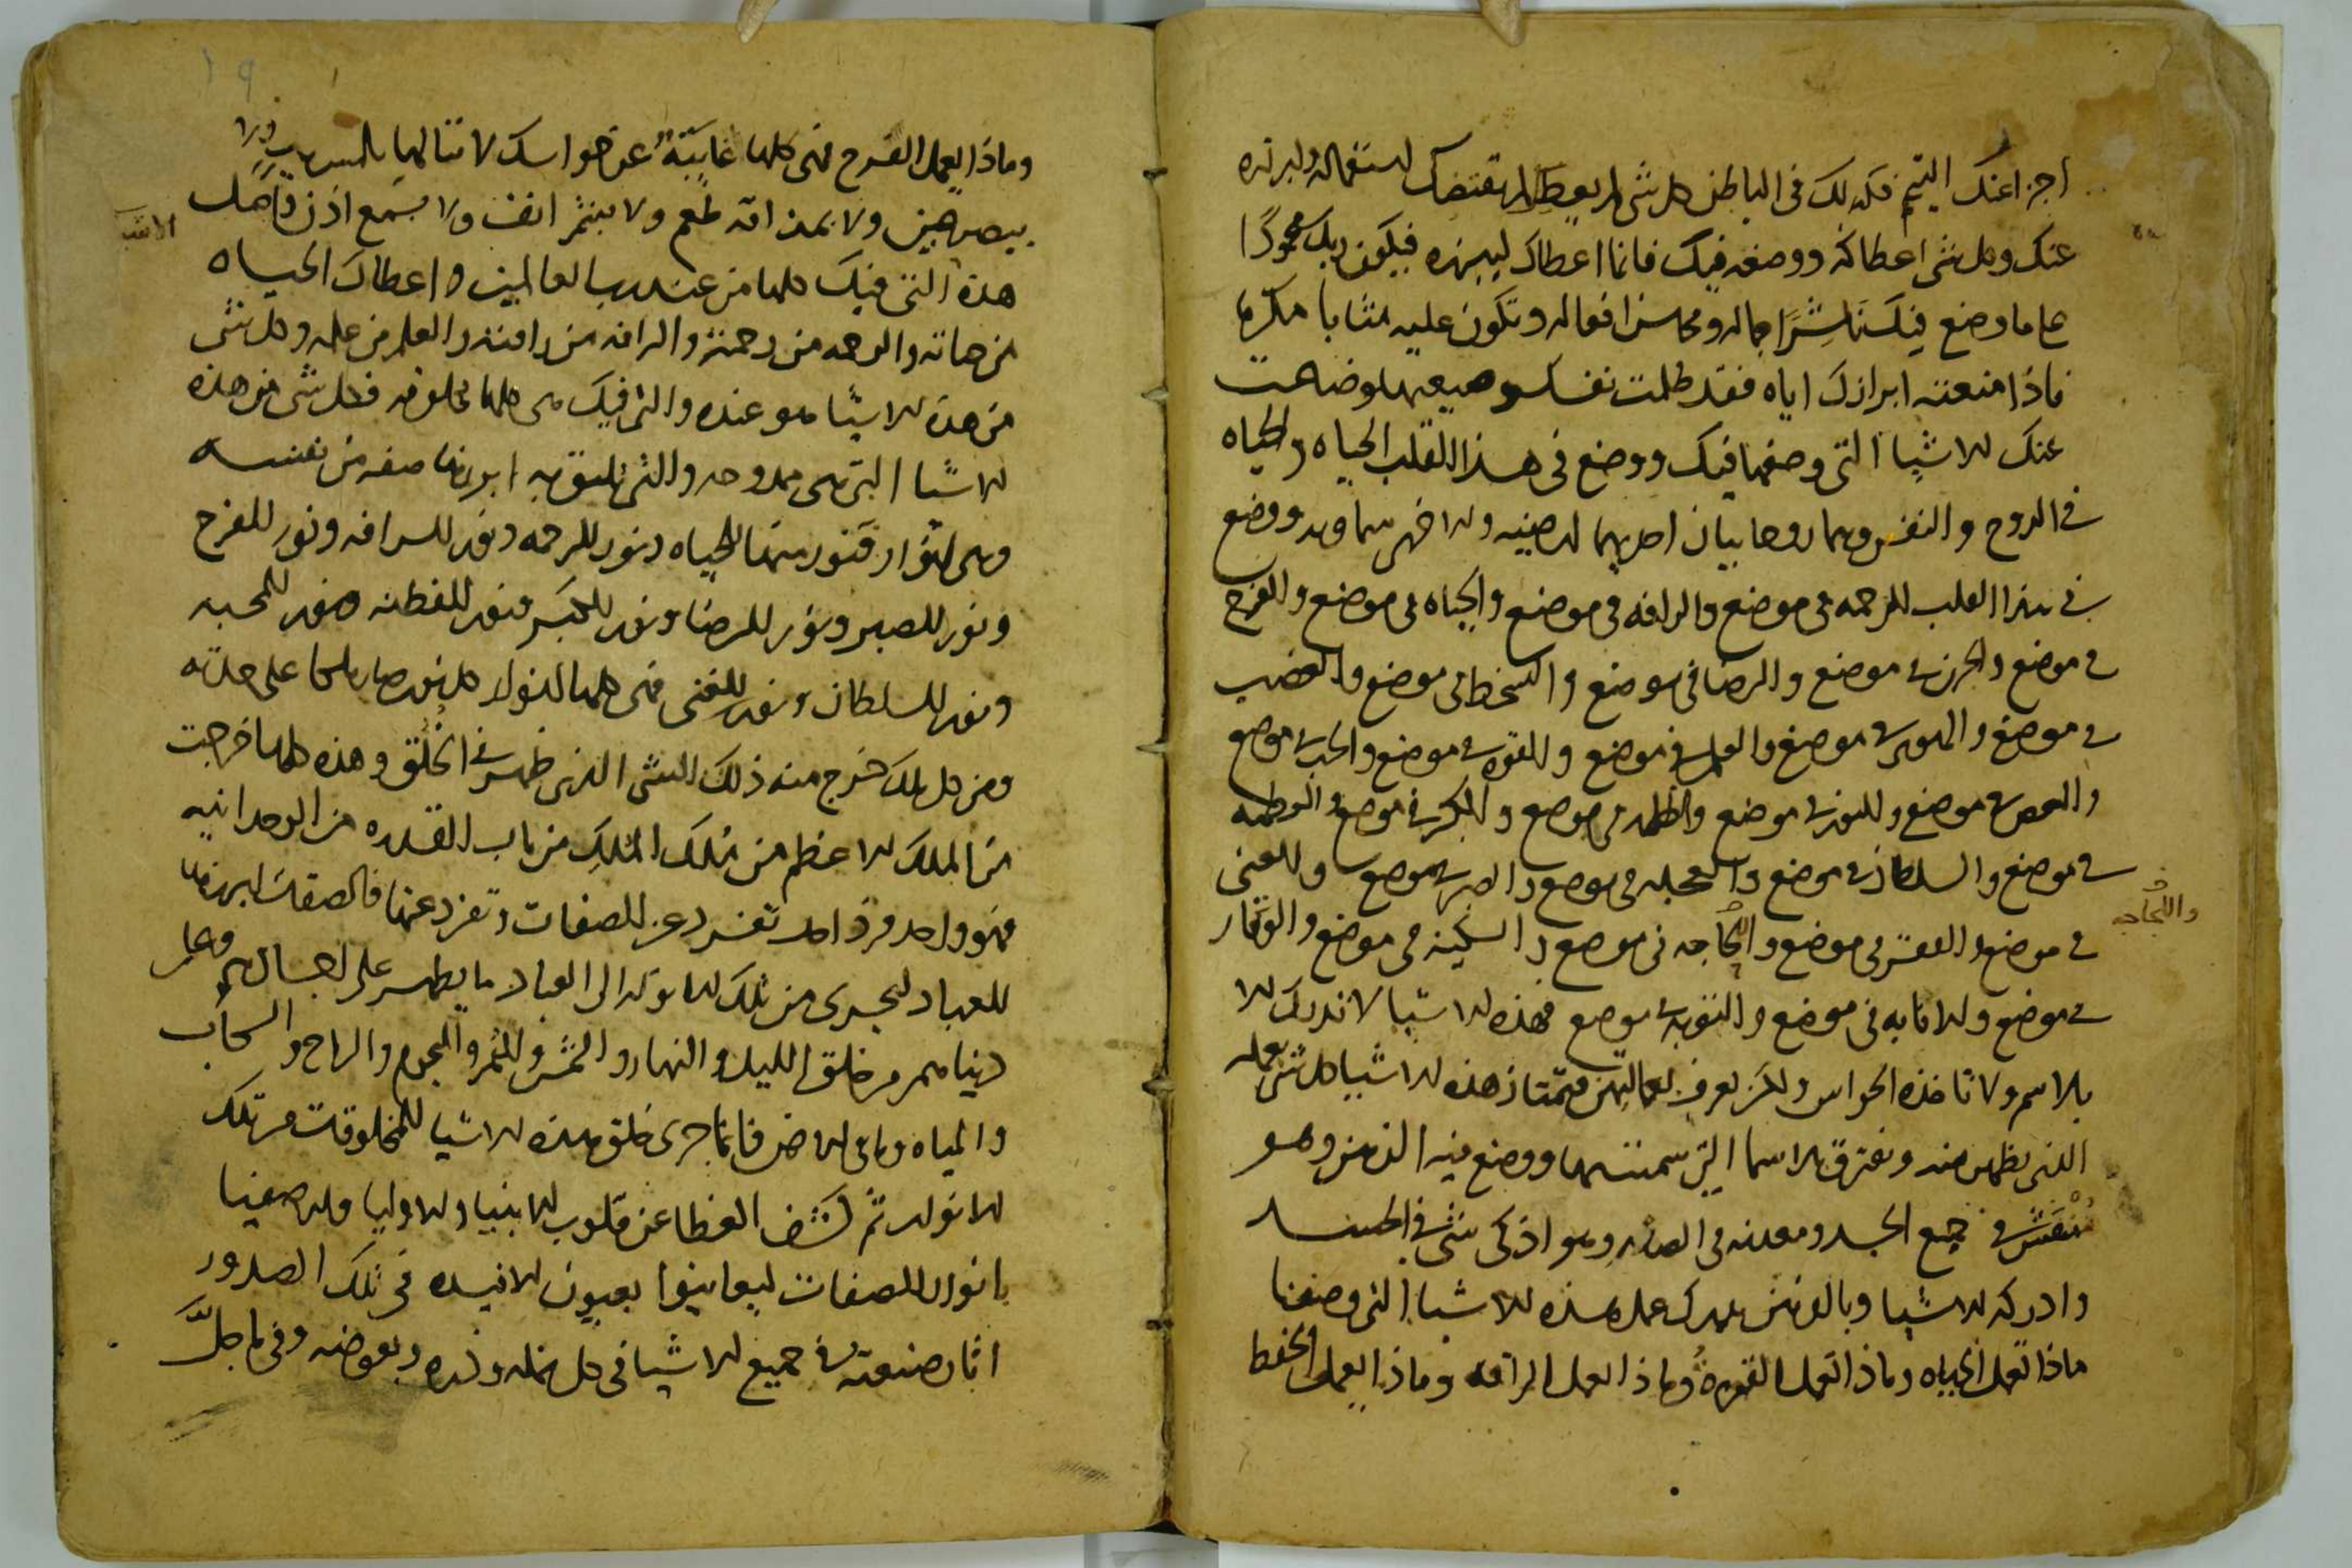 اجزا عنك التيم فكذلك في الباطن كل شي لم يعطك لم يقتضك استعماله ولبرزه
عنك وكل شي اعطاكه ووضعه فيك فانما اعطاك ليبرزه فيكون ربك محمودا
على ما وضع فيك ناشرا جماله ومحاسن افعاله وتكون عليه مثابا مكرما
فاذا منعته ابرازك اياه فقد ظلمت نفسك وضاعت
عنك الاشيا التي وضعها فيك ووضع في هذا القلب الحياه والحياه
في الروح والنفس وهما روحانيان احديهما ارضيه والاخرى سماويه ووضع
في هذا القلب الرحمه في موضع والرافه في موضع والحياه في موضع والفرح
في موضع والحزن في موضع والرضا في موضع والسخط في موضع والغضب
في موضع والهوى في موضع والعلم في موضع والقوه في موضع والحب في موضع
والحرص في موضع والنور في موضع والظلمه في موضع والمكر في موضع والفطنه
في موضع والسلطان في موضع والعجله في موضع والصبر في موضع والغنى
في موضع والفقر في موضع واللجاجه في موضع والسكينه في موضع والوقار
واللجاجه
في موضع والانابه في موضع والتوبه في موضع فهذه الاشيا لا تدرك الا
بالاسم ولا تاخذه الحواس ولكن يعرف افعالهن فتمتاز هذه الاشيا كل شي بعمله
الذي يظهر منه وتفترق بالاسما التي سميتها ووضع فيه الذهن وهو
منفش في جميع الجسد ومعدنه في الصدر وهو اذكى شي في الجسد
وادركه للاشيا وبالذهن يدرك عمل هذه الاشيا التي وصفنا
ماذا تعمل الحياه وماذا تعمل القوة وماذا تعمل الرافه وماذا يعمل الحفظ
وماذا يعمل الفرح فهي كلها غايبة عن حواسك لا تنالها بلمس يد ولا
يبصر عين ولا بمذاقه طعم ولا بنشر انف ولا بسمع اذن فاصل
هذه التي فيك كلها من عند رب العالمين واعطاك الحياه
من حياته والرحمه من رحمته والرافه من رافته والعلم من علمه وكل شي
من هذه الاشيا هو عنده والتي فيك هي كلها مخلوقه فكل شي من هذه
الاشيا التي هي ممدوحه والتي تليق به ابرزها صفه من نفسه
وهي انوار فنور منها للحياه ونور للرحمه ونور للرافه ونور للفرح
ونور للصبر ونور للرضا ونور للكبر ونور للفطنه ونور للمحبه
ونور للسلطان ونور للغنى فهي كلها انوار كل نور صار ملكا على حدته
ومن كل ملك خرج منه ذلك الشي الذي ظهر في الخلق وهذه كلها خرجت
من الملك الاعظم من ملك الملك من باب القدره من الوحدانيه
فهو واحد فرد احد تفرد عن الصفات وتفرد عنها فالصفات ابرزها
للعباد ليجري من تلك الانوار الى العباد ما يظهر على اجسادهم وعلى
دنياهم من خلق الليل والنهار والشمس والقمر والنجوم والرياح والسحاب
والمياه وما في الارض فانما جرى خلق هذه الاشيا المخلوقات من تلك
الانوار ثم كشف الغطا عن قلوب الانبيا والاوليا والاصفيا
بانوار الصفات ليعاينوا بعيون الافيده في تلك الصدور
اثار صنعته في جميع الاشيا في كل نمله وذره وبعوضه وفي ما جل